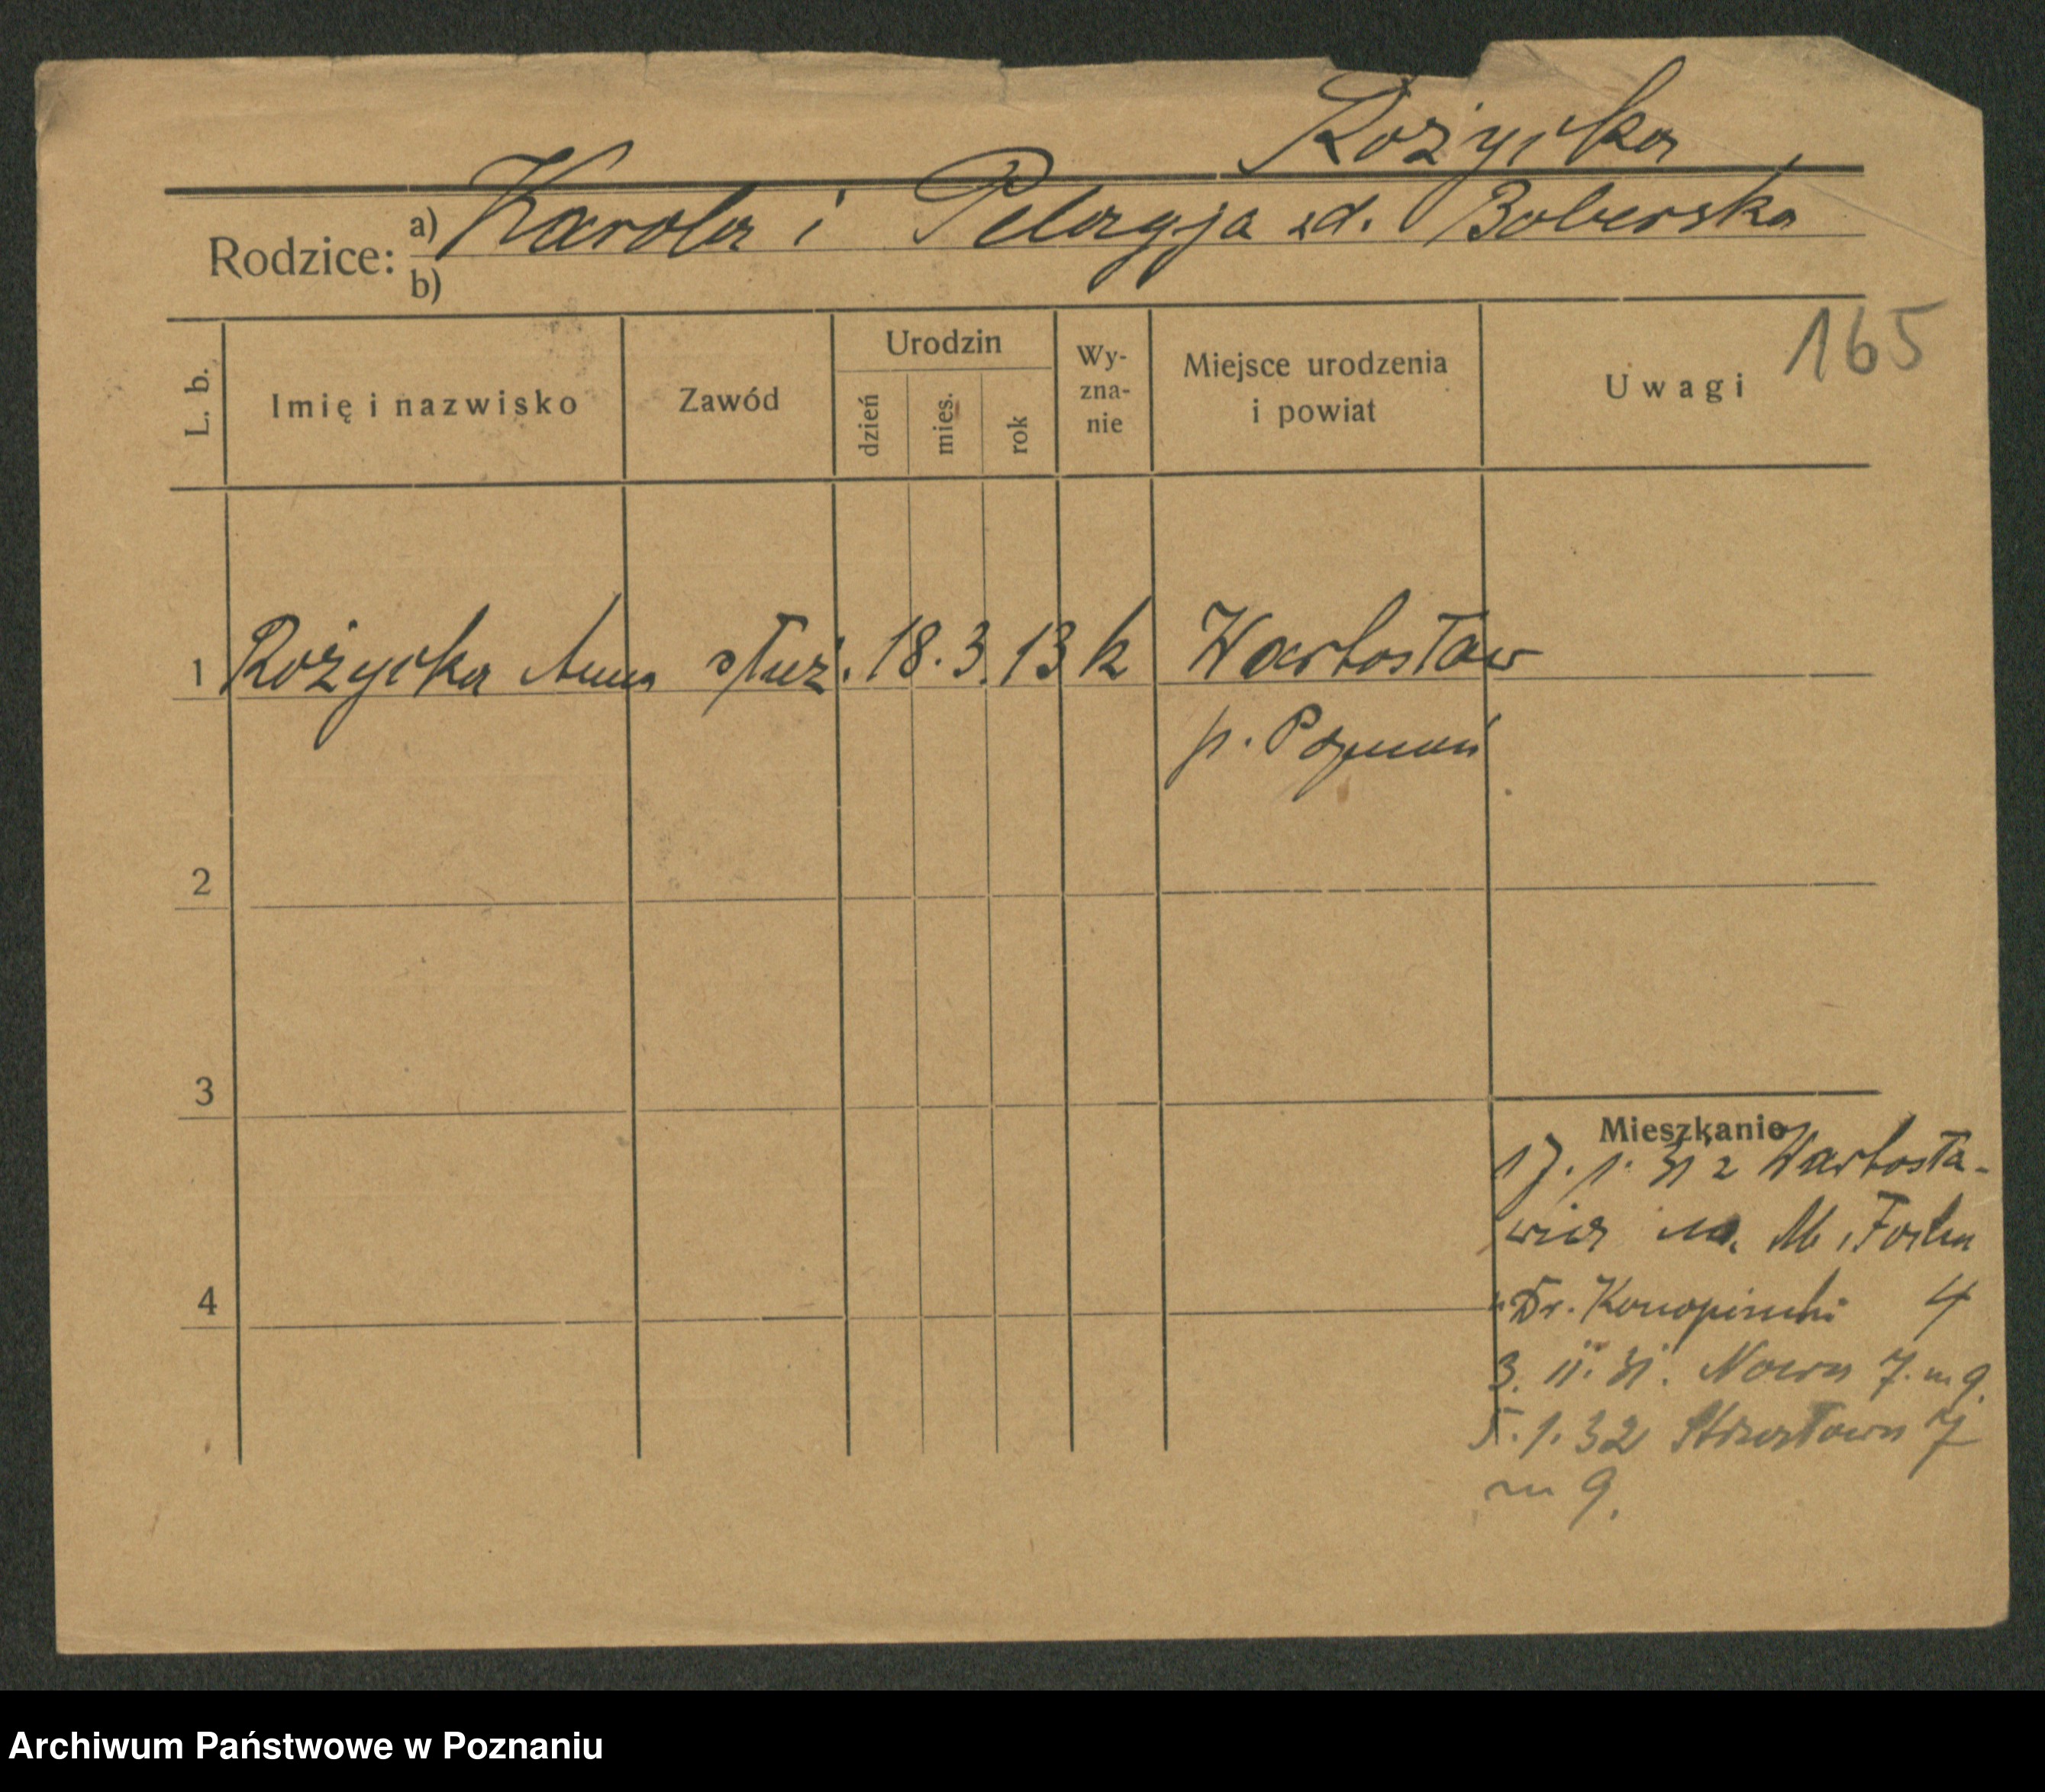 Rożycka
Rodzice: a) Karola i Pelagja zd. Boberska
b)
165
L. b. Imię i nazwisko Zawód Urodzin dzień mies. rok Wy-zna-nie Miejsce urodzenia i powiat Uwagi
1 Rożycka Anna służ. 18. 3. 13 k Wartosław
p. Poznań
2
3
Mieszkanie
17. 1. 31 z Wartosła-
wia na M. Focha
4
Dr. Konopiński 4
3. II. 31. Nowa 7. m 9.
5. 1. 32 7
m 9.
Archiwum Państwowe w Poznaniu